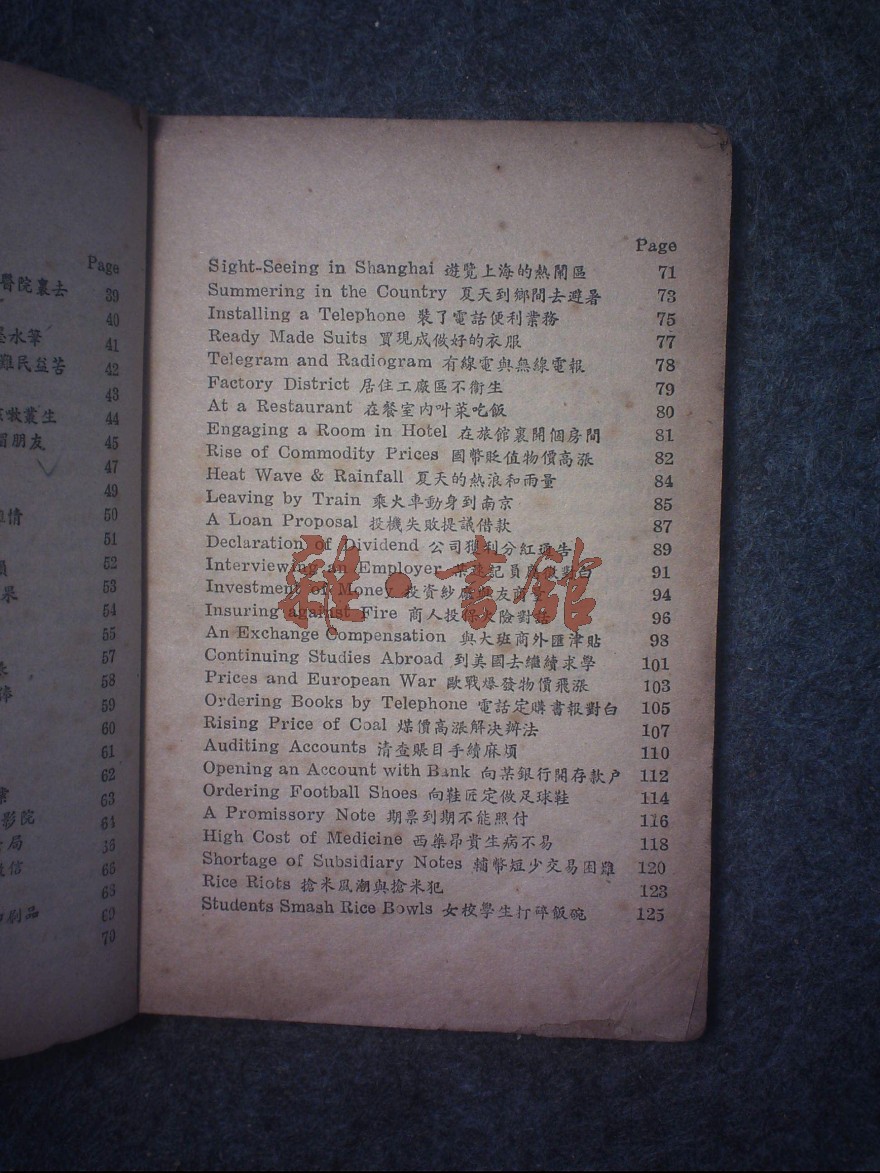 Page
醫院裏去 39
40
水筆 41
難民益苦 42
43
叢生 44
朋友 45
47
49
情 50
51
52
果 53
54
55
57
58
59
60
61
62
63
影院 64
局
信 65
68
刷品 69
70
Page
Sight-Seeing in Shanghai 遊覽上海的熱鬧區 71
Summering in the Country 夏天到鄉間去避暑 73
Installing a Telephone 裝了電話便利業務 75
Ready Made Suits 買現成做好的衣服 77
Telegram and Radiogram 有線電與無線電報 78
Factory District 居住工廠區不衞生 79
At a Restaurant 在餐室內叫菜吃飯 80
Engaging a Room in Hotel 在旅館裏開個房間 81
Rise of Commodity Prices 國幣貶值物價高漲 82
Heat Wave & Rainfall 夏天的熱浪和雨量 84
Leaving by Train 乘火車動身到南京 85
A Loan Proposal 投機失敗提議借款 87
Declaration of Dividend 公司獲利分紅 告 89
Interviewing an Employer 記員 對白 91
Investment of Money 投資紗廠與友商量 94
Insuring against Fire 商人投保火險對話 96
An Exchange Compensation 與大班商外匯津貼 98
Continuing Studies Abroad 到美國去繼續求學 101
Prices and European War 歐戰爆發物價飛漲 103
Ordering Books by Telephone 電話定購書報對白 105
Rising Price of Coal 煤價高漲解決辦法 107
Auditing Accounts 清查賬目手續麻煩 110
Opening an Account with Bank 向某銀行開存款户 112
Ordering Football Shoes 向鞋匠定做足球鞋 114
A Promissory Note 期票到期不能照付 116
High Cost of Medicine 西藥昂貴生病不易 118
Shortage of Subsidiary Notes 輔幣短少交易困難 120
Rice Riots 搶米風潮與搶米犯 123
Students Smash Rice Bowls 女校學生打碎飯碗 125
雜·書館